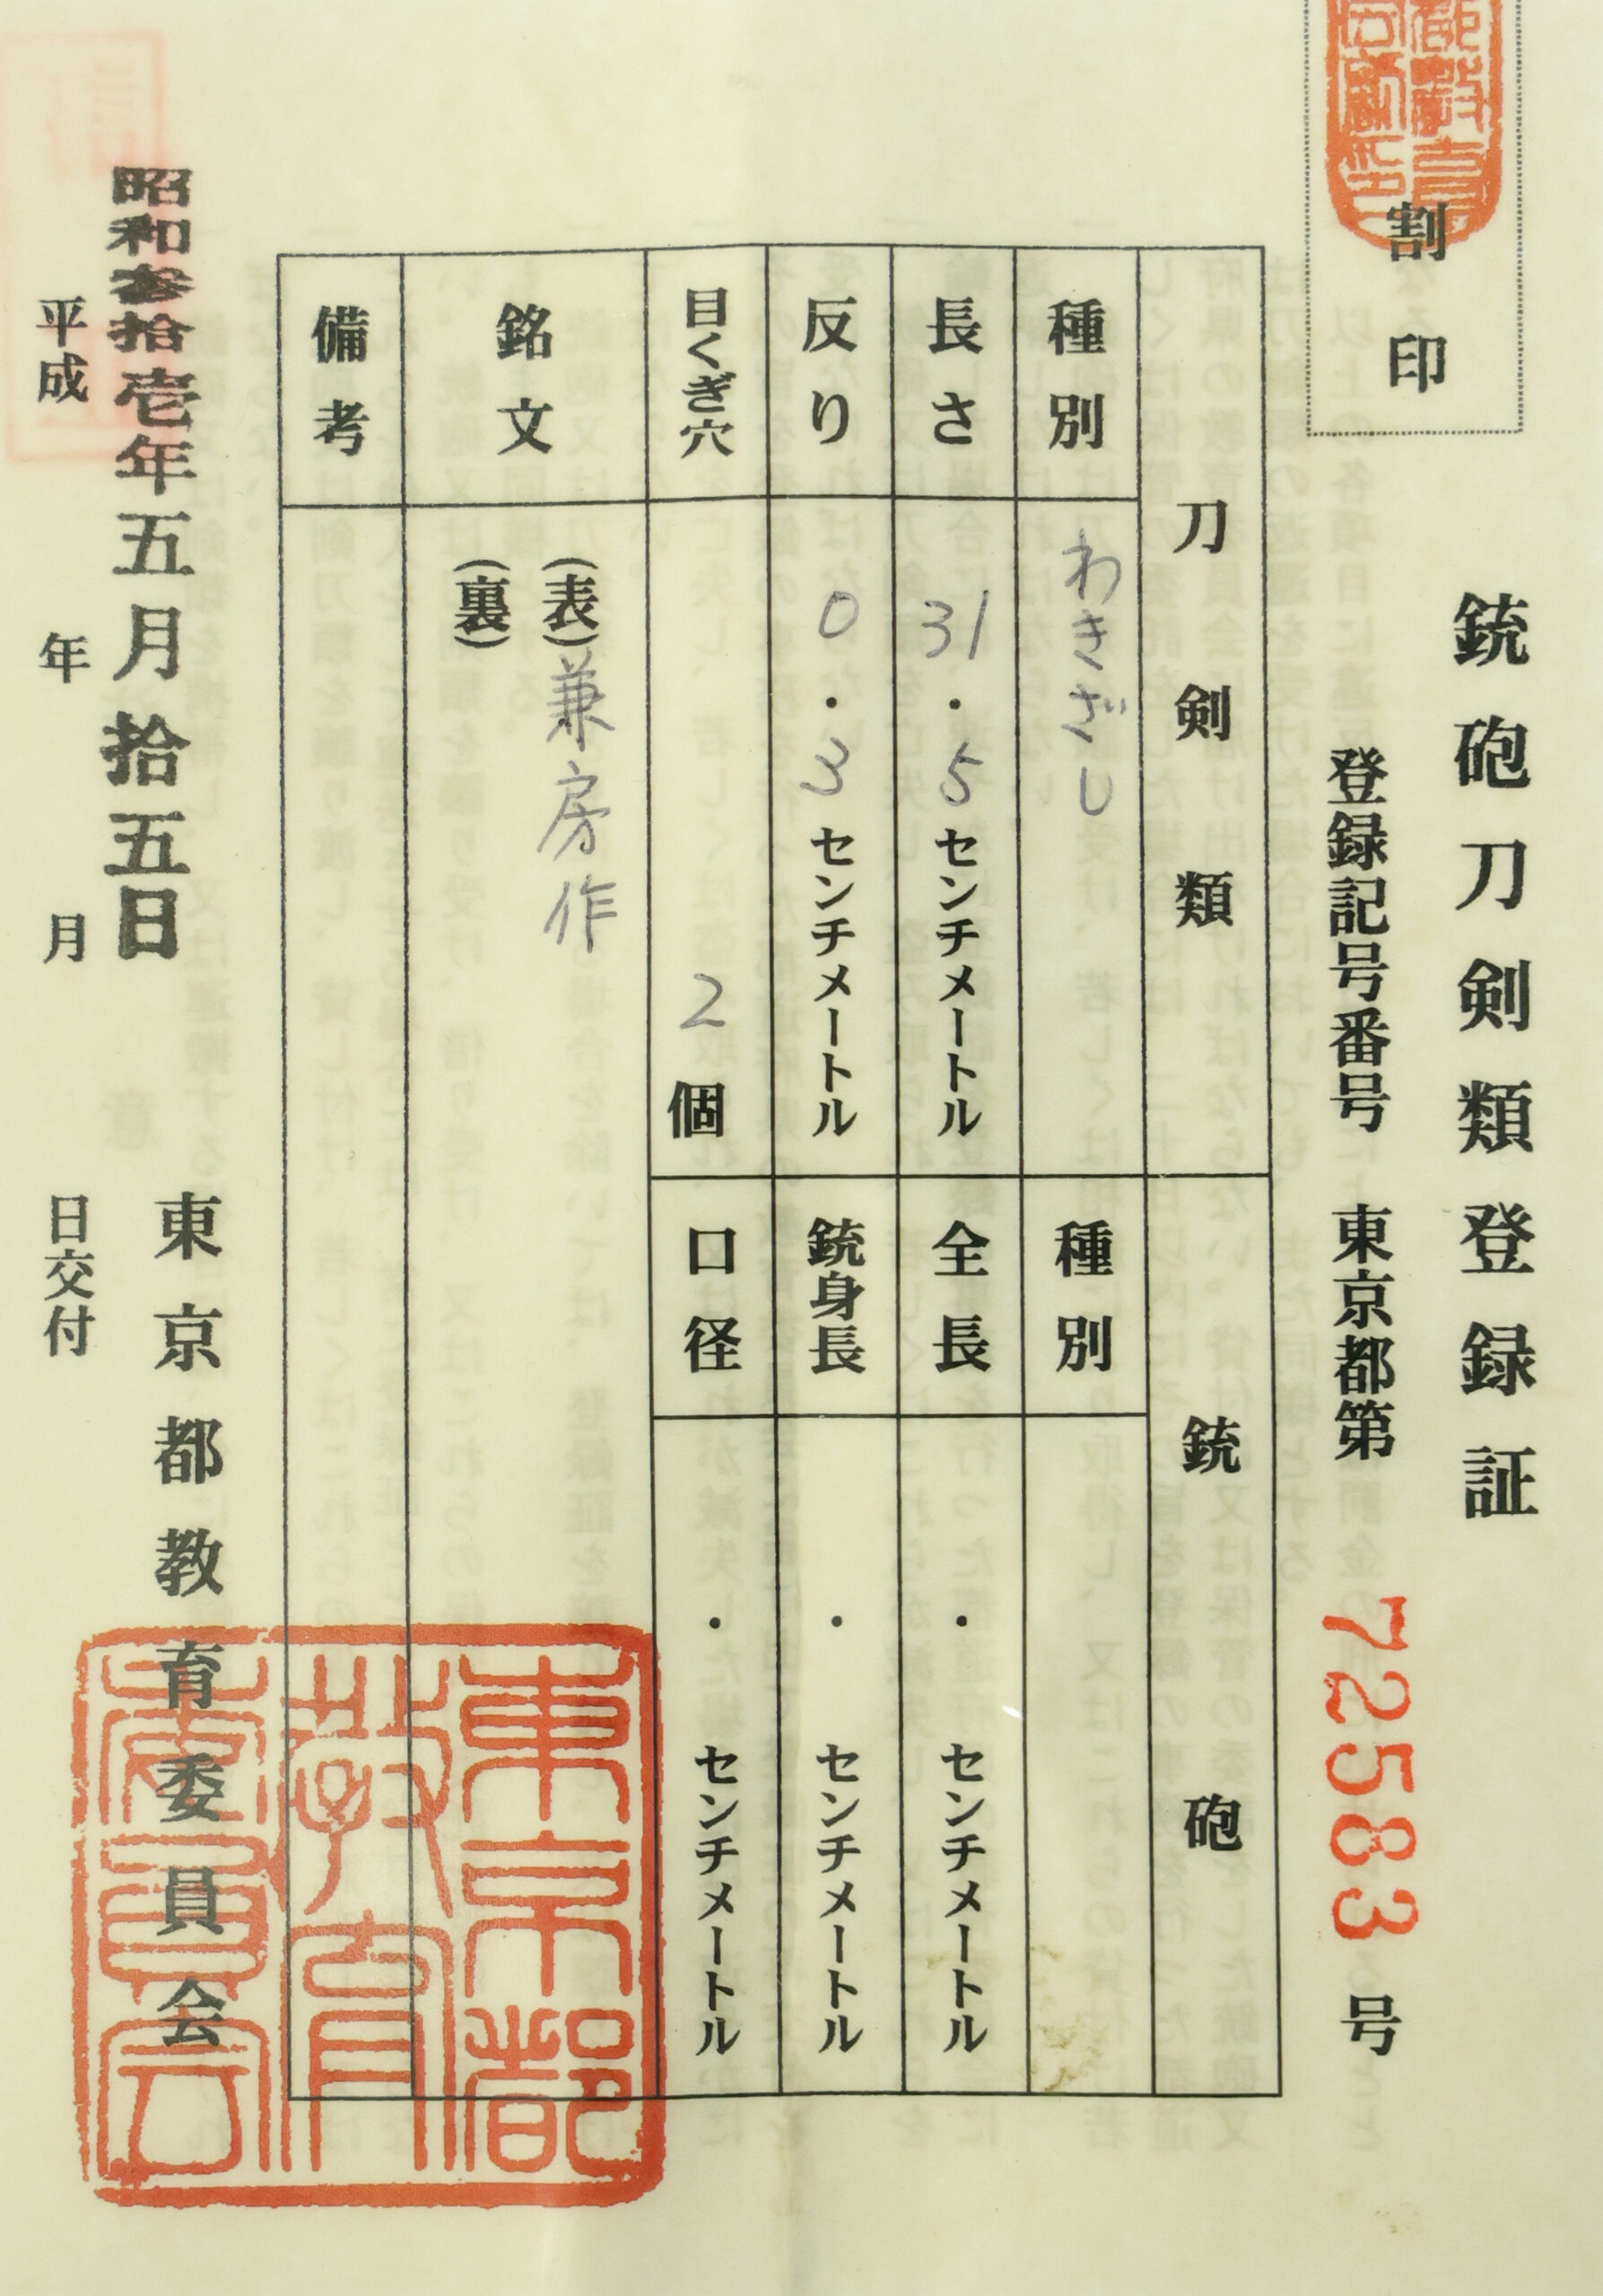 割印
銃砲刀剣類登録証
登録記号番号 東京都第 72583 号
刀剣類
種別 わきざし
長さ 31.5センチメートル
反り 0.3センチメートル
目くぎ穴 2個
銘文
(表)兼房作
(裏)
備考
銃砲
種別
全長 ・ センチメートル
銃身長 ・ センチメートル
口径 ・ センチメートル
昭和参拾壱年五月拾五日
平成 年 月 日交付
東京都教育委員会
東京都
教育
委員会